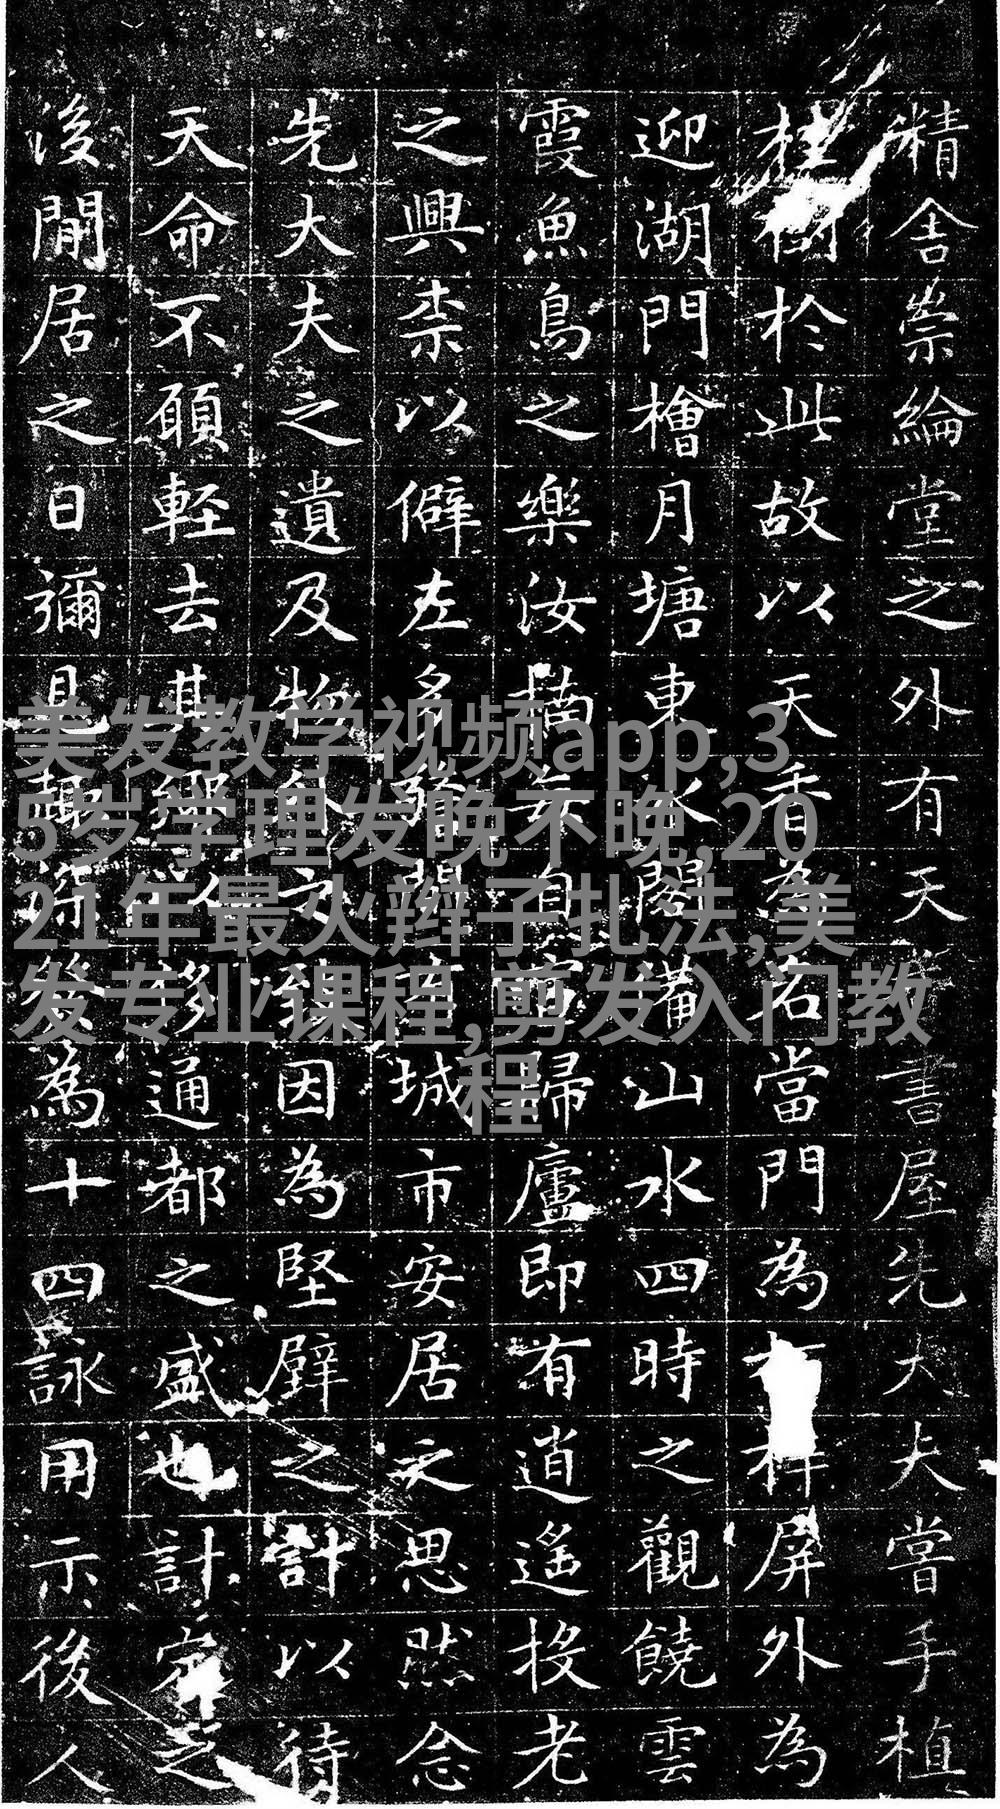 精舍崇綸堂之外有天書屋先大夫嘗手植
桂樹於此故以天香名當門為屏外為
迎湖門檜月塘東水閣備山水四時之觀饒雲
霞魚鳥之樂汝楠自歸廬即有逍遙投老
之興柰以僻左多城市安居之思然念
先大夫之遺及物因為堅壁之計以待
天命不願輕去其移通都之盛也計定之
後閒居之日彌是趣深爰為十四詠用示後人
美发教学视频app,3
5岁学理发晚不晚,20
21年最火辫子扎法,美
发专业课程,剪发入门教
程